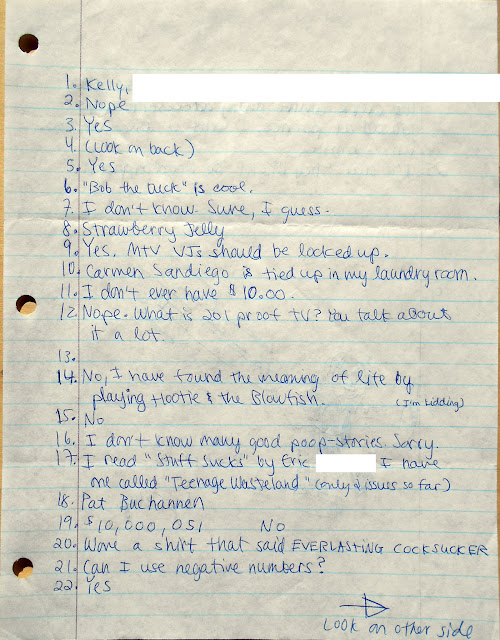 1. Kelly,
2. Nope
3. Yes
4. (Look on back)
5. Yes
6. "Bob the Duck" is cool.
7. I don't know. Sure, I guess.
8. Strawberry Jelly
9. Yes. MTV VJs should be locked up.
10. Carmen Sandiego is tied up in my laundry room.
11. I don't ever have $10.00.
12. Nope. What is 201 proof TV? You talk about
it a lot.
13.
14. No, I have found the meaning of life by
playing Hootie & the Blowfish. (I'm kidding)
15. No
16. I don't know many good poop-stories. Sorry.
17. I read "Stuff Sucks" by Eric I have
one called "Teenage Wasteland" (only 2 issues so far)
18. Pat Buchannen
19. $10,000,051 No
20. Wore a shirt that said EVERLASTING COCKSUCKER
21. Can I use negative numbers?
22. Yes
Look on other side